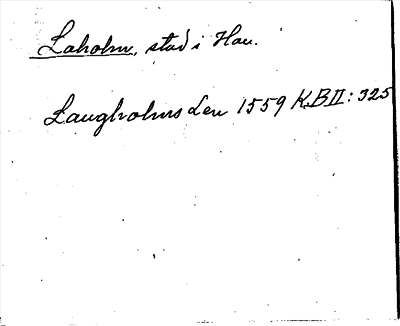 Laholm, stad i Hall.
Laugholms Len 1559 K.B II: 325